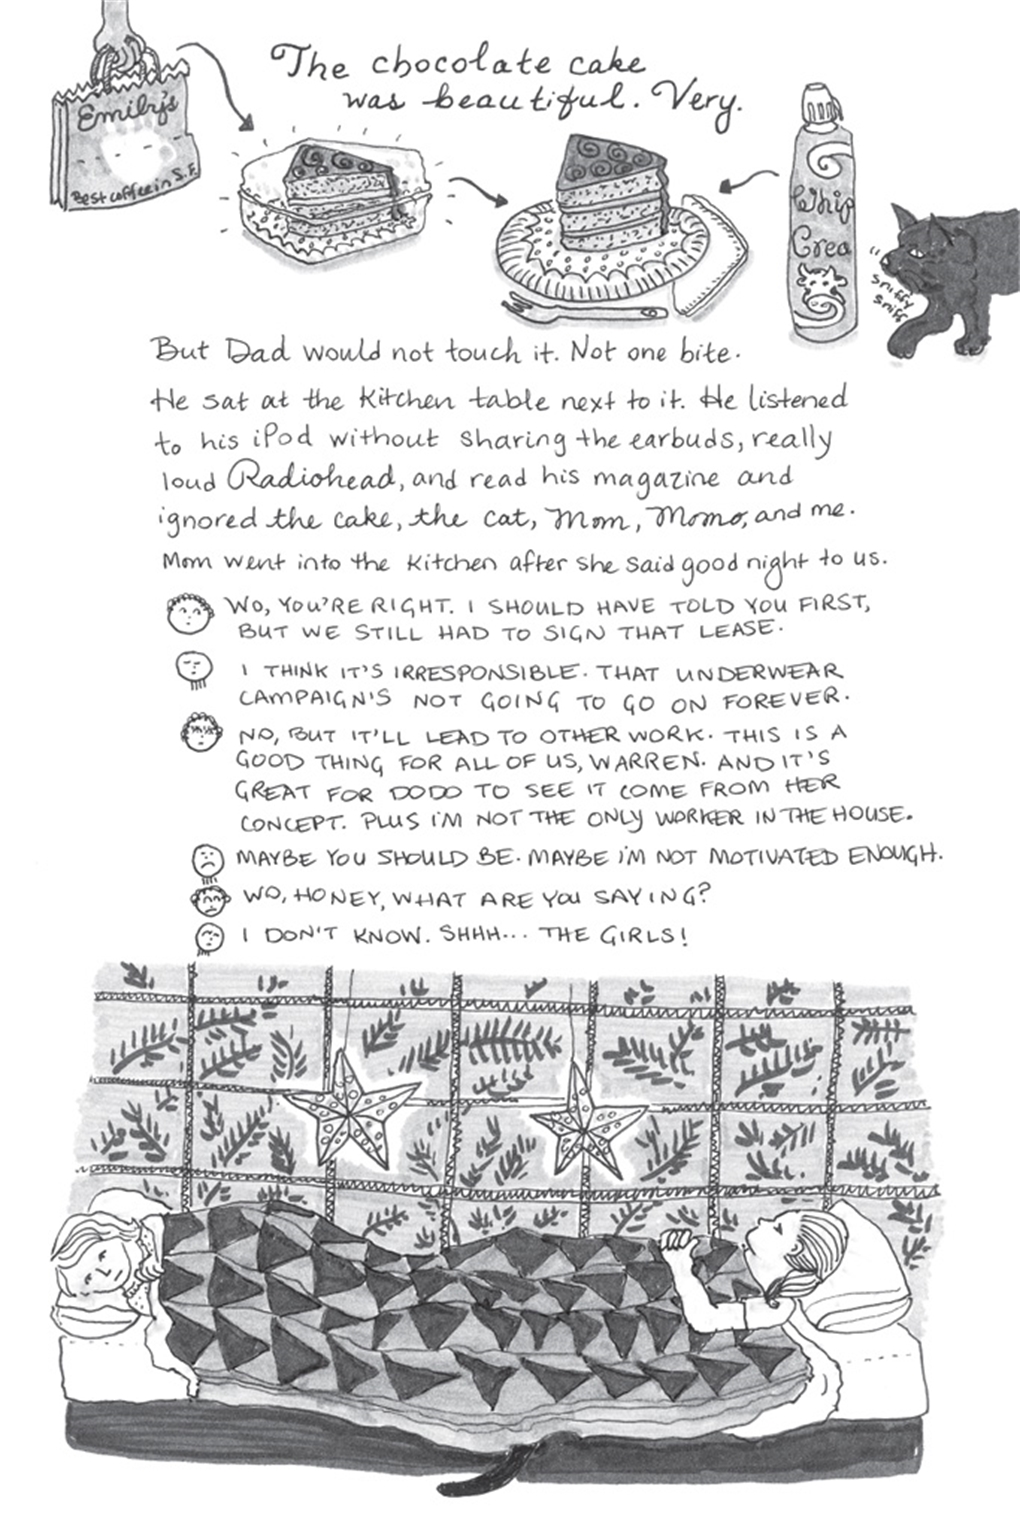 Emily's
Best coffee in S.F.
The chocolate cake
was beautiful. Very.
Whip
Crea
sniffy
sniff
But Dad would not touch it. Not one bite.
He sat at the kitchen table next to it. He listened
to his iPod without sharing the earbuds, really
loud Radiohead, and read his magazine and
ignored the cake, the cat, Mom, Momo, and me.
Mom went into the kitchen after she said good night to us.
WO, YOU'RE RIGHT. I SHOULD HAVE TOLD YOU FIRST,
BUT WE STILL HAD TO SIGN THAT LEASE.
I THINK IT'S IRRESPONSIBLE. THAT UNDERWEAR
CAMPAIGN'S NOT GOING TO GO ON FOREVER.
NO, BUT IT'LL LEAD TO OTHER WORK. THIS IS A
GOOD THING FOR ALL OF US, WARREN. AND IT'S
GREAT FOR DODO TO SEE IT COME FROM HER
CONCEPT. PLUS I'M NOT THE ONLY WORKER IN THE HOUSE.
MAYBE YOU SHOULD BE. MAYBE I'M NOT MOTIVATED ENOUGH.
WO, HONEY, WHAT ARE YOU SAYING?
I DON'T KNOW. SHHH... THE GIRLS!